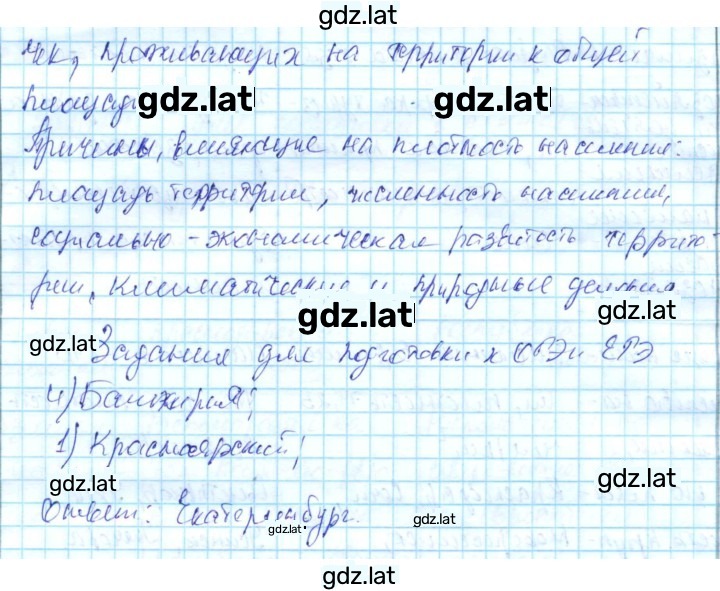 gdz.lat
чек, проживающих на территории к общей
площади
gdz.lat gdz.lat
Причины, влияющие на плотность населения:
площадь территории, численность населения,
социально-экономическая развитость террито-
рии, климатические и природные
gdz.lat gdz.lat
gdz.lat
Задания для подготовки к ОГЭ и ЕГЭ
4) Башкирия;
1) Красноярский;
gdz.lat gdz.lat
Ответ: Екатеринбург.
gdz.lat gdz.lat
gdz.lat